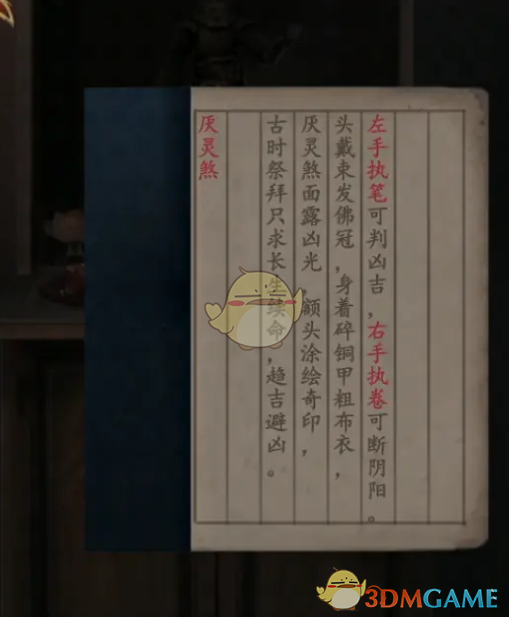 厌灵煞
古时祭拜只求长生续命，趋吉避凶。
厌灵煞面露凶光，额头涂绘奇印，
头戴束发佛冠，身着碎铜甲粗布衣，
左手执笔可判凶吉，右手执卷可断阴阳。
3DMGAME